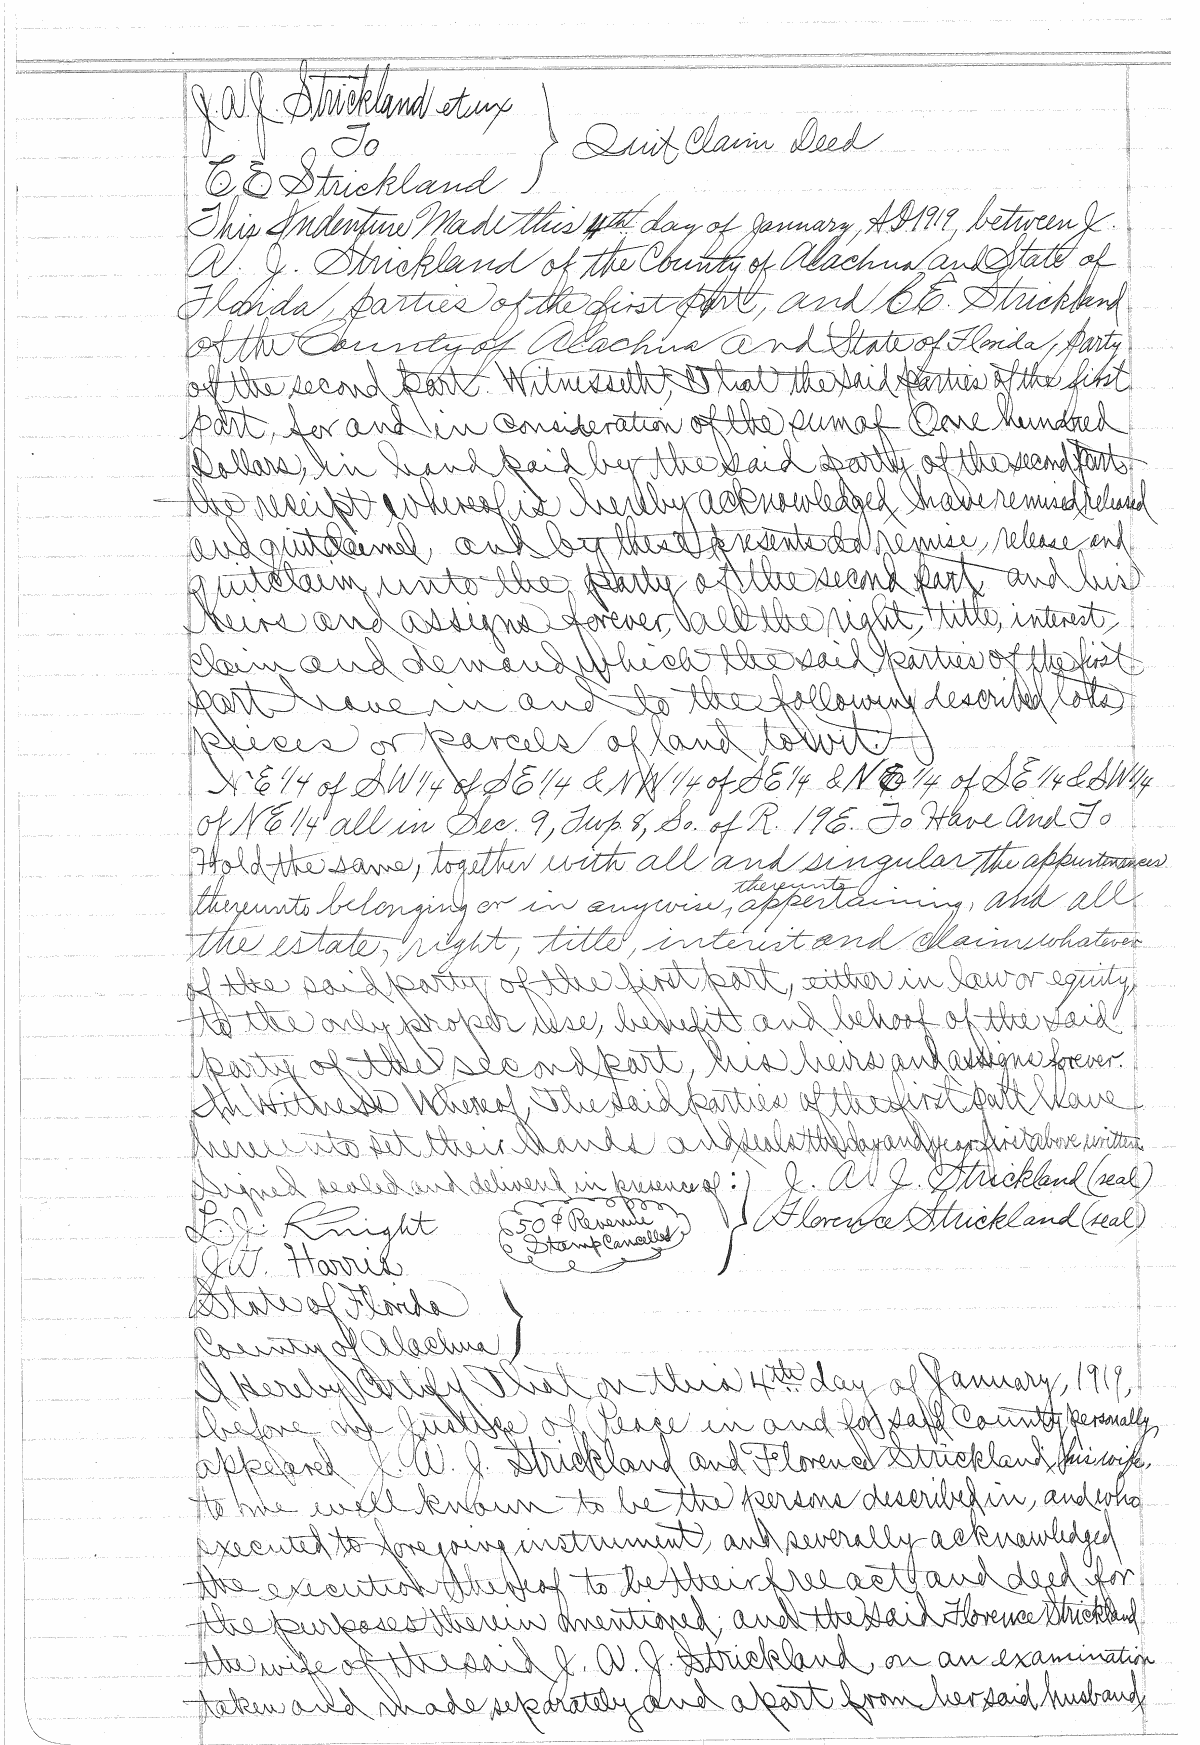 J. A. J. Strickland et ux
To
C E Strickland
Quit Claim Deed
This Indenture Made this 4th day of January, A D 1919, between J.
A. J. Strickland of the County of Alachua and State of
Florida, parties of the first part, and C E. Strickland
of the County of Alachua and State of Florida, party
of the second part. Witnesseth, That the said parties of the first
part, for and in consideration of the sum of One hundred
Dollars, in hand paid by the said party of the second part
the receipt whereof is hereby acknowledged, have remised, released
and quitclaimed, and by these presents do remise, release and
quitclaim unto the party of the second part, and his
heirs and assigns forever, all the right, title, interest,
claim and demand which the said parties of the first
part have in and to the following described lots,
pieces or parcels of land to wit:
N E 1/4 of SW 1/4 of SE 1/4 & NW 1/4 of SE 1/4 & N E 1/4 of SE 1/4 & SW 1/4
of NE 1/4 all in Sec. 9, Twp. 8, So. of R. 19 E. To Have And To
Hold the same, together with all and singular the appurtenances
thereunto belonging or in anywise, thereunto appertaining, and all
the estate, right, title, interest and claim whatever
of the said party of the first part, either in law or equity,
to the only proper use, benefit and behoof of the said
party of the second part, his heirs and assigns forever.
In Witness Whereof, The said parties of the first part have
hereunto set their hands and seals the day and year first above written.
Signed sealed and delivered in presence of:
J. A. J. Strickland (seal)
L. J. Knight
50¢ Revenue
Stamp Cancelled
Florence Strickland (seal)
J. W. Harris
State of Florida
County of Alachua
I Hereby Certify That on this 4th day of January, 1919,
before me Justice of Peace in and for said County personally
appeared J. A. J. Strickland and Florence Strickland, his wife,
to me well known to be the persons described in, and who
executed to foregoing instrument, and severally acknowledged
the execution thereof to be their free act and deed for
the purposes therein mentioned; and the said Florence Strickland
the wife of the said J. A. J. Strickland, on an examination
taken and made separately and apart from her said husband